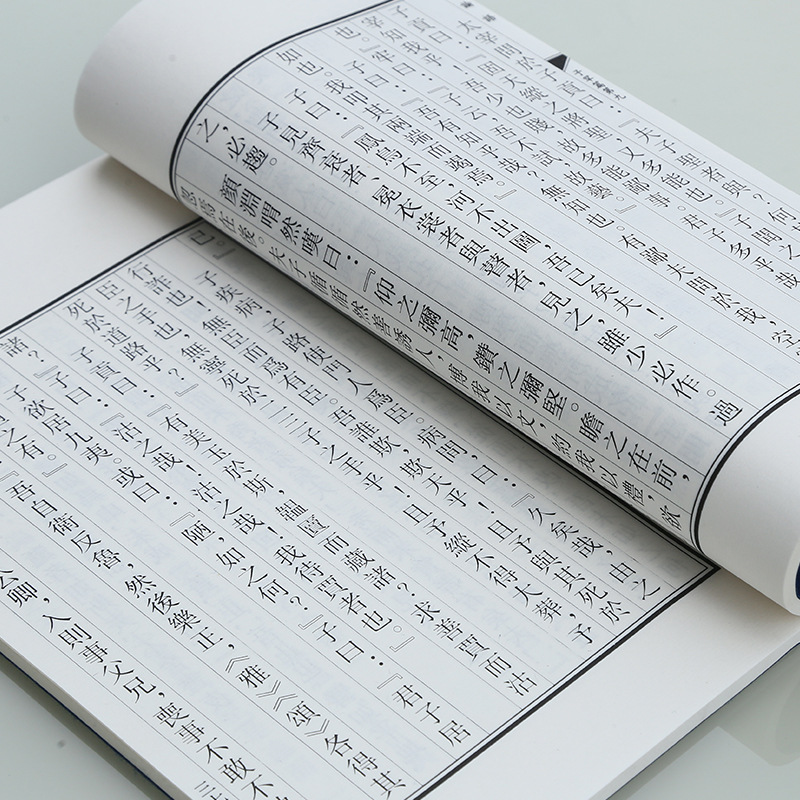 論語
子罕篇第九
太宰問於子貢曰：『夫子聖者與？何
子貢曰：『固天縱之將聖，又多能也。』子聞之
宰知我乎！吾少也賤，故多能鄙事。君子多乎哉
也。』牢曰：『子云：吾不試，故藝。』
子曰：『吾有知乎哉？無知也。有鄙夫問於我，空
如也。我叩其兩端而竭焉。』
子曰：『鳳鳥不至，河不出圖，吾已矣夫！』
子見齊衰者、冕衣裳者與瞽者，見之，雖少必作。過
之，必趨。
顏淵喟然嘆曰：『仰之彌高，鑽之彌堅。瞻之在前，
忽焉在後。夫子循循然善誘人，博我以文，約我以禮，欲
已。』
子疾病，子路使門人爲臣。病間，曰：『久矣哉，由之
行詐也！無臣而爲有臣。吾誰欺，欺天乎！且予與其死於
臣之手也，無寧死於二三子之手乎！且予縱不得大葬，予
死於道路乎？』
子貢曰：『有美玉於斯，韞匵而藏諸？求善賈而沽
諸？』子曰：『沽之哉！沽之哉！我待賈者也。』
子欲居九夷。或曰：『陋，如之何？』子曰：『君子居
之有。』
『吾自衛反魯，然後樂正，《雅》《頌》各得其
公卿，入則事父兄，喪事不敢不